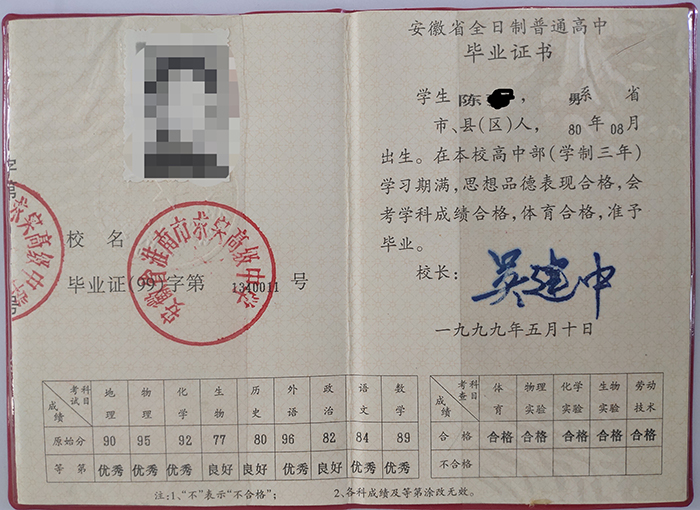 安徽省全日制普通高中
毕业证书
学生 陈 ， 男 系 省
市、县(区)人， 80 年 08 月
出生。在本校高中部(学制三年)
学习期满，思想品德表现合格，会
考学科成绩合格，体育合格，准予
毕业。
校长： 吴建中
一九九九年五月十日
字第
号
校名
毕业证(99)字第 1340011 号
安徽省淮南市
高级中学
高级中学
考试科目 成绩 地理 物理 化学 生物 历史 外语 政治 语文 数学
原始分 90 95 92 77 80 96 82 84 89
等第 优秀 优秀 优秀 良好 良好 优秀 良好 优秀 优秀
考查科目 成绩 体育 物理实验 化学实验 生物实验 劳动技术
合格 合格 合格 合格 合格 合格
不合格
注:1、“不”表示“不合格”； 2、各科成绩及等第涂改无效。